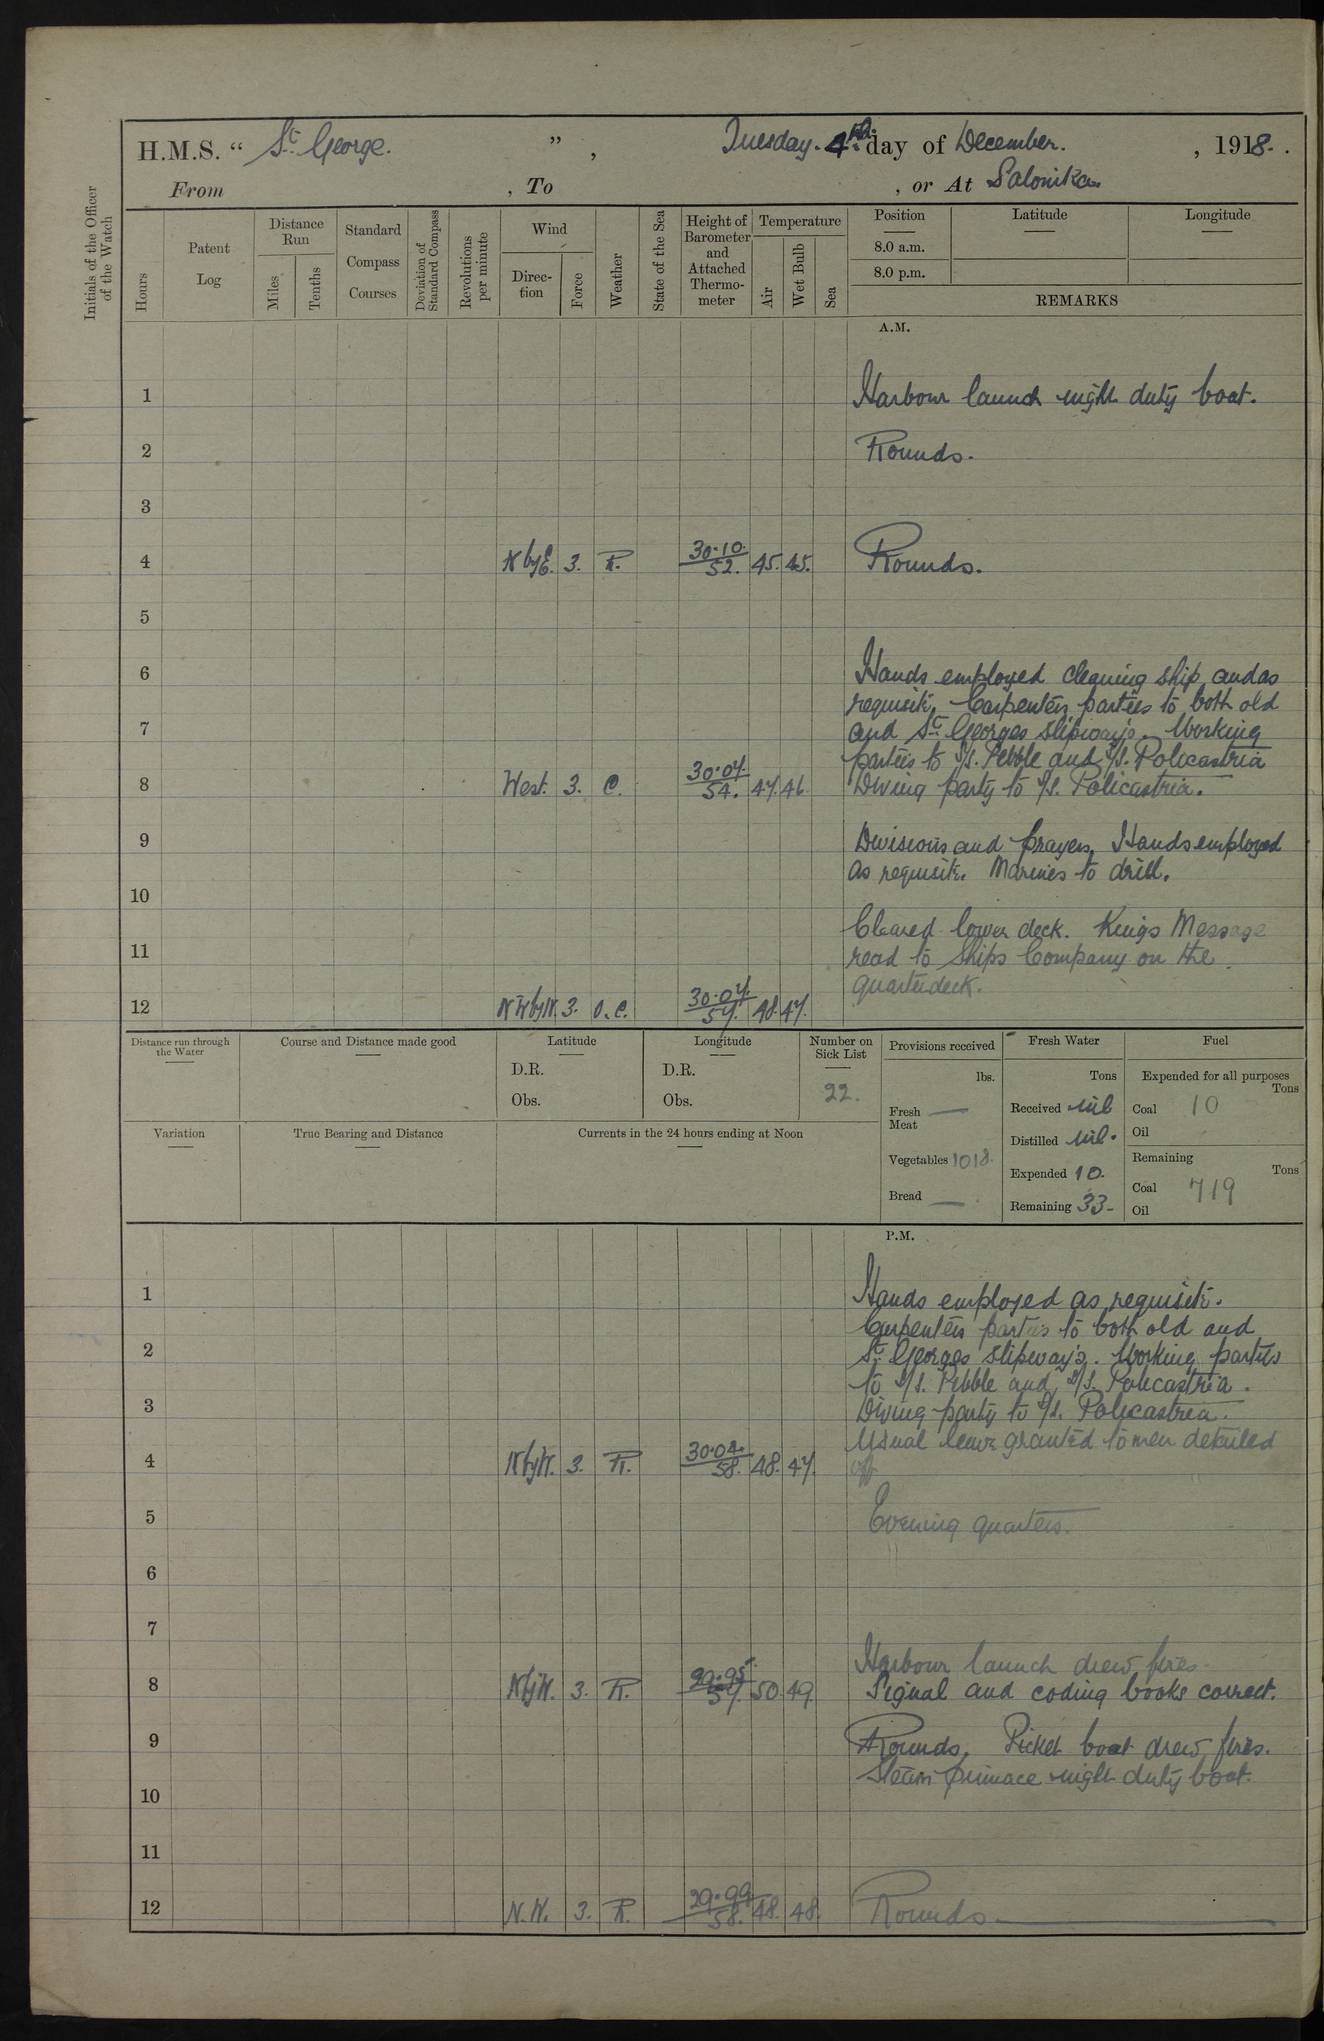 H.M.S. “ St. George. ” , Tuesday. 4th day of December. , 1918.
From , To , or At Salonika
Initials of the Officer of the Watch
Hours
Patent Log
Distance Run
Miles
Tenths
Standard Compass Courses
Deviation of Standard Compass
Revolutions per minute
Wind
Direction
Force
Weather
State of the Sea
Height of Barometer and Attached Thermometer
Temperature
Air
Wet Bulb
Sea
Position
8.0 a.m.
8.0 p.m.
Latitude
Longitude
REMARKS
A.M.
1 Harbour launch night duty boat.
2 Rounds.
3
4 N by E. 3. R. 30.10. 52. 45. 45. Rounds.
5
6 Hands employed cleaning ship, and as
requisite, Carpenters parties to both old
7 and St. Georges slipways. Working
parties to S/S. Pebble and S/S. Policastria
8 West. 3. C. 30.07. 54. 47. 46. Diving party to S/S. Policastria.
9 Divisions and prayers, Hands employed
as requisite. Marines to drill.
10
Cleared lower deck. Kings Message
11 read to Ships Company on the
quarterdeck.
12 3. O.C. 30.07. 48. 47.
Distance run through the Water
Course and Distance made good
Latitude
D.R.
Obs.
Longitude
D.R.
Obs.
Number on Sick List
22.
Variation
True Bearing and Distance
Currents in the 24 hours ending at Noon
Provisions received
lbs.
Fresh Meat —
Vegetables 1018.
Bread —
Fresh Water
Tons
Received nil
Distilled nil.
Expended 10.
Remaining 33-
Fuel
Expended for all purposes
Tons
Coal 10
Oil
Remaining
Tons
Coal 719
Oil
P.M.
1 Hands employed as requisite.
Carpenters parties to both old and
2 St. Georges slipways. Working parties
to S/S. Pebble and S/S. Policastria.
3 Diving party to S/S. Policastria.
Usual leave granted to men detailed
4 N by W. 3. R. 30.04. 58. 48. 47. off
5 Evening quarters.
6
7
Harbour launch drew fires.
8 N by W. 3. R. 29.95. 57. 50. 49. Signal and coding books correct.
9 Rounds, Picket boat drew fires.
Steam pinnace night duty boat.
10
11
12 N.W. 3. R. 29.99. 58. 48. 48. Rounds.